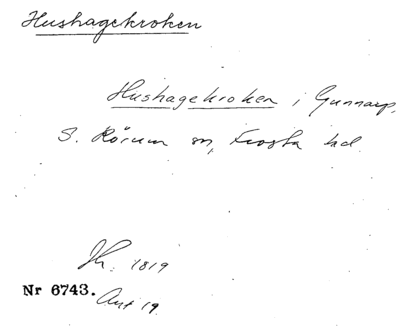 Hushagekroken
Hushagekroken i Gunnarp,
S. Rörum sn, Frosta hd.
Jh. 1819
Nr 6743.
Akt 19.